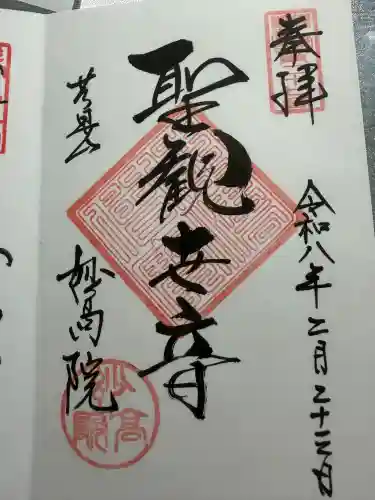 奉拝
令和八年二月二十二日
聖観世音
芝曼
妙高院
妙高院